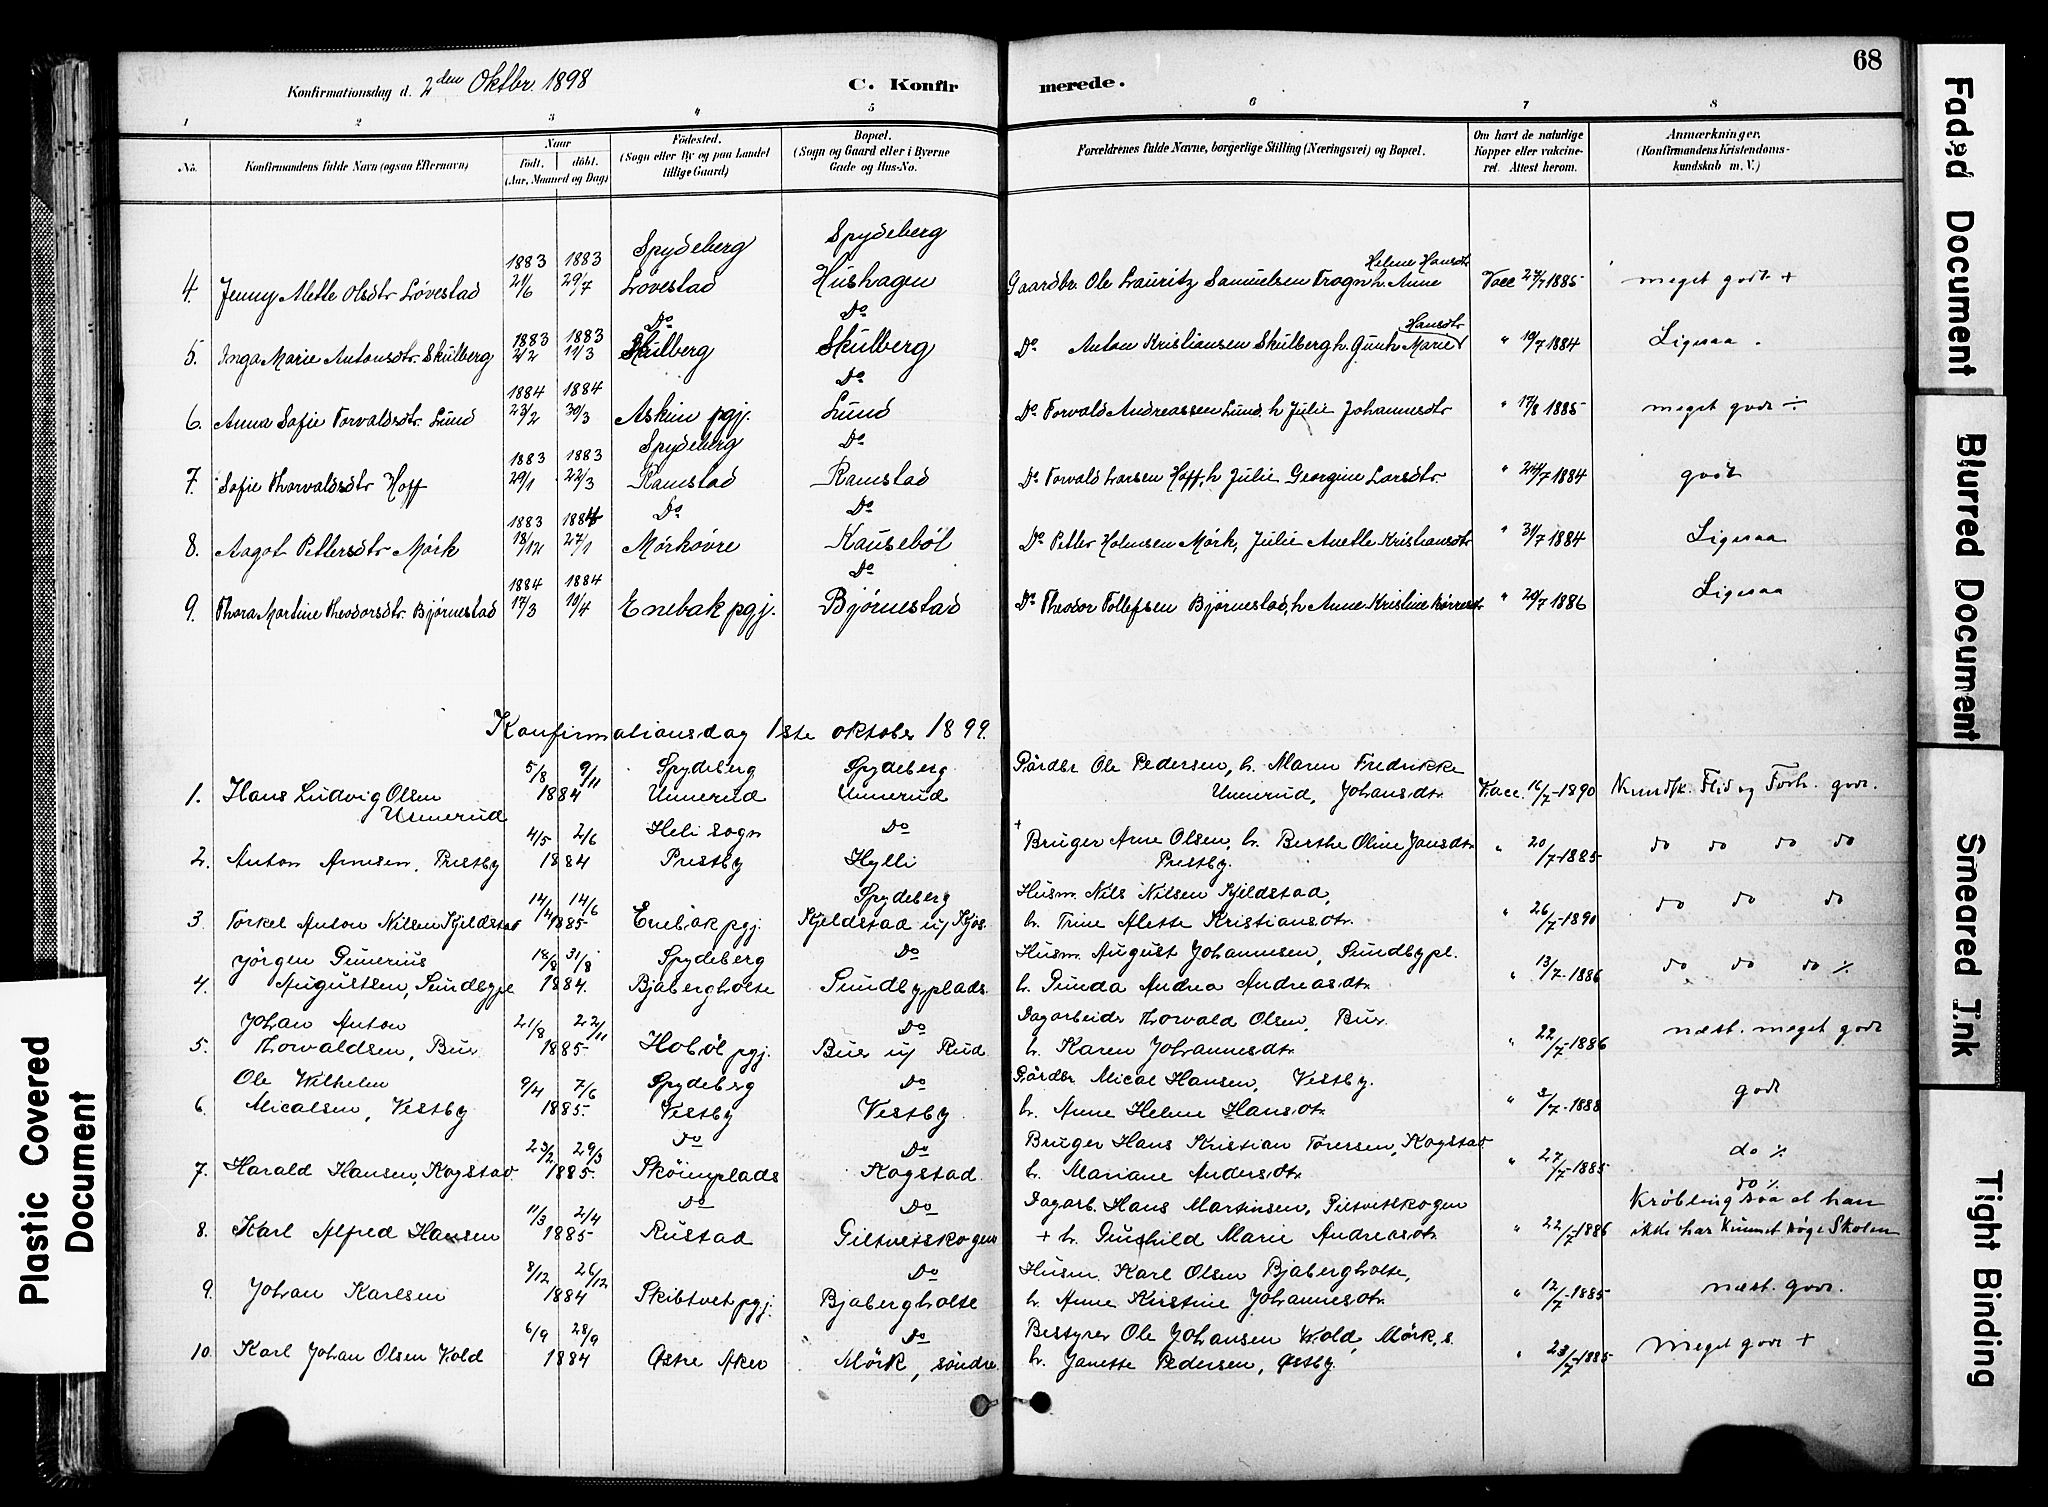 68
Konfirmationsdag d. 2den Oktbr. 1898
C. Konfirmerede.
1 2 3 4 5 6 7 8
No.
Konfirmandens fulde Navn (ogsaa Efternavn)
Naar
født. døbt.
(Aar, Maaned og Dag)
Fødested.
(Sogn eller By og paa Landet
tillige Gaard)
Bopæl.
(Sogn og Gaard eller i Byerne
Gade og Hus-No.
Forældrenes fulde Navne, borgerlige Stilling (Næringsvei) og Bopæl.
Om havt de naturlige
Kopper eller vakcine-
ret. Attest herom.
Anmærkninger.
(Konfirmandens Kristendoms-
kundskab m. V.)
Spydeberg Spydeberg
1883 1883 Helene Hansdtr
4. Jenny Mette Olsdtr Løvestad 21/6 29/7 Løvestad Hushagen Gaardbr. Ole Lauritz Samuelsen Frogn h. Anne Vacc 24/7 1885 meget godt +
1883 1883 Do Do Hansdtr
5. Inga Marie Antonsdtr. Skulberg 2/2 11/3 Skulberg Skulberg Do Anton Kristiansen Skulberg h. Gunh. Marie " 19/7 1884 Ligesaa .
1884 1884 Do
6. Anna Sofie Torvaldsdtr. Lund 23/2 30/3 Askim pgj. Lund Do Torvald Andreassen Lund, h Julie Johannesdtr " 17/8 1885 meget godt ÷
1883 1883 Spydeberg Do
7. Sofie Thorvaldsdtr Hoff 29/1 22/3 Ramstad Ramstad Do Torvald Larsen Hoff, h Julie Georgine Larsdtr. " 24/7 1884 godt
1883 1884 Do Do
8. Aagot Pettersdtr Mørk 18/12 27/1 Mørkøvre Kausebøl Do Petter Holmsen Mørk, Julie Anette Kristiansdtr " 31/7 1884 Ligesaa
1884 1884 Do
9. Thora Martine Theodorsdtr. Bjørnestad 17/3 14/4 Enebak pgj. Bjørnestad Do Theodor Tollefsen Bjørnestad, h Anne Kristine " 20/7 1886 Ligesaa
Konfirmationsdag 1ste oktober 1899.
5/8 9/11 Spydeberg Spydeberg Gårdbr Ole Pedersen, h. Maren Fredrikke
1. Hans Ludvig Olsen 1884 Unnerud Unnerud Unnerud, Johansdtr. Vacc. 16/7-1890 Kundsk. Flid og Forh. godt.
Unnerud
4/5 2/6 Heli sogn Do Bruger Arne Olsen, h. Berthe Oline Jansdtr
2. Anton Arnesen, Prestby 1884 Prestby Hylli Prestby. " 20/7-1885 do do do do
14/4 14/6 Spydeberg Husm. Nils Nilsen Kjeldstad,
3 Torkel Anton Nilsen Kjeldstad 1885 Enebak pgj. Kjeldstad u/ h. Trine Alette Kristiansdtr. " 26/7-1890 do do do
Jørgen Gunerius 18/8 31/8 Spydeberg Do Husm. August Johannesen, Sundbypl.
4. Augustsen, Sundbypl 1884. Bjabergholte Sundbyplads. h. Gunda Andrea Andreasdtr. " 13/7-1886 do do do ÷
Johan Anton 21/8 22/11 Do Dagarbeider Thorvald Olsen, Bur.
5. Thorvaldsen, Bur 1885 Hobøl pgj. Bur u/ Rud h. Karen Johannesdtr. " 22/7-1886 næst. meget godt
Ole Wilhelm 9/4 7/6 Spydeberg Do Gårdbr Micael Hansen, Vestby.
6. Micalsen, Vestby 1885. Vestby Vestby. h. Anne Helene Hansdtr. " 3/7-1888 godt
23/2 29/3 Do Do Bruger Hans Kristian Torersen, Kogstad
7. Harald Hansen, Kogstad. 1885. Skøimplads Kogstad. h. Mariane Andersdtr. " 27/7-1885 do ÷
11/3 2/4 Do Do Dagarb. Hans Martinsen, Giltvetskogen do ÷ Krøbling saa at han
8. Karl Alfred Hansen 1885 Rustad Giltvetskogen + h. Gunhild Marie Andreasdtr. " 22/7-1886 ikke har kunnet søge Skolen
8/12 26/12 Do Husm. Karl Olsen Bjabergholte,
9. Johan Karlsen 1884 Skibtvet pgj. Bjabergholte h. Anne Kirstine Johannesdtr. " 12/7-1885 næst. godt.
6/9 28/9 Do Bestyrer Ole Johansen Wold, Mørk, s.
10. Karl Johan Olsen Wold 1884 Østre Aker Mørk, søndre h. Janette Pedersen, Østby. " 23/7-1885 Meget godt +
Faded Document
Blurred Document
Smeared Ink
Tight Binding
Plastic Covered
Document